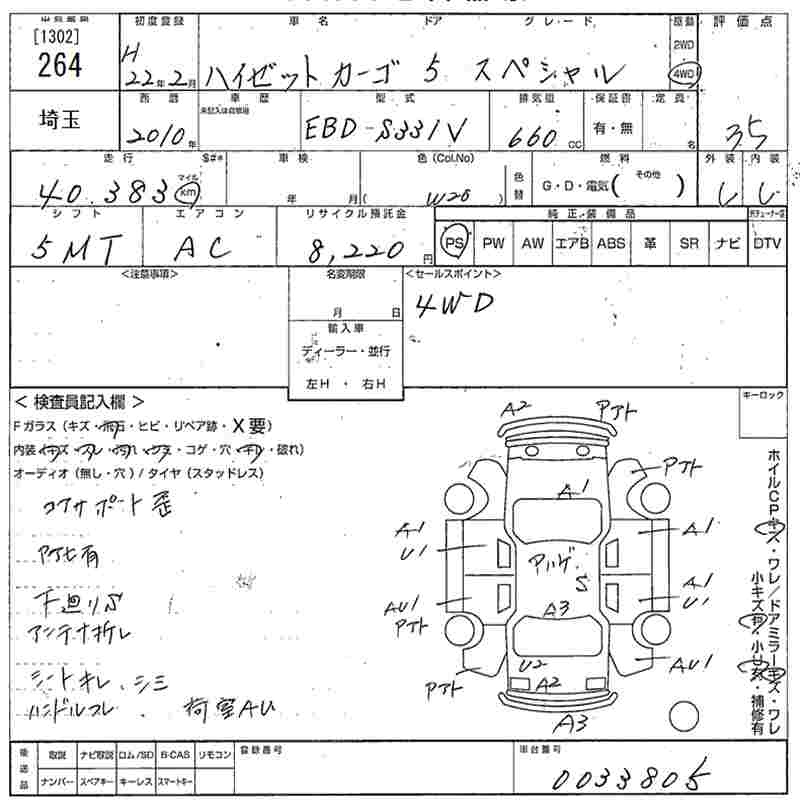 出品番号 初度登録 車名 ドア グレード 駆動 評価点
[1302]
264
H 22年 2月
ハイゼットカーゴ 5 スペシャル
2WD
4WD
3.5
埼玉
西暦 車歴 型式 排気量 保証書 定員
未記入は自家用
2010年
EBD-S331V
660cc
有・無
名
走行 S#* 車検 色(Col.No) 色替 燃料 その他 外装 内装
40,383 マイル km
年 月
( W28 )
G・D・電気( )
シフト エアコン リサイクル預託金 純正装備品
5MT AC 8,220円
PS PW AW エアB ABS 革 SR ナビ DTV
<注意事項> 名変期限 <セールスポイント>
月 日
4WD
輸入車
ディーラー・並行
左H ・ 右H
<検査員記入欄>
キーロック
Fガラス(キズ・飛石・ヒビ・リペア跡・X要)
内装(キズ・スレ・汚れ・・コゲ・穴・・破れ)
オーディオ(無し・穴)/タイヤ(スタッドレス)
コアサポート歪
アト色有
下廻りS
アンテナ折レ
シートキレ、シミ
ハンドルスレ 荷室AU
A2 アト
アト
A1
A1 U1
A1
アルゲ S
A1 U1
AU1 アト
A3
U2 A2
アト
AU1
A3
ホイルCPキズ・ワレ/ドアミラーキズ・ワレ
小キズ有・小U有・補修有
後送品 取説 ナビ取説 ロム/SD B-CAS リモコン 登録番号 車台番号
ナンバー スペアキー キーレス スマートキー
0033805